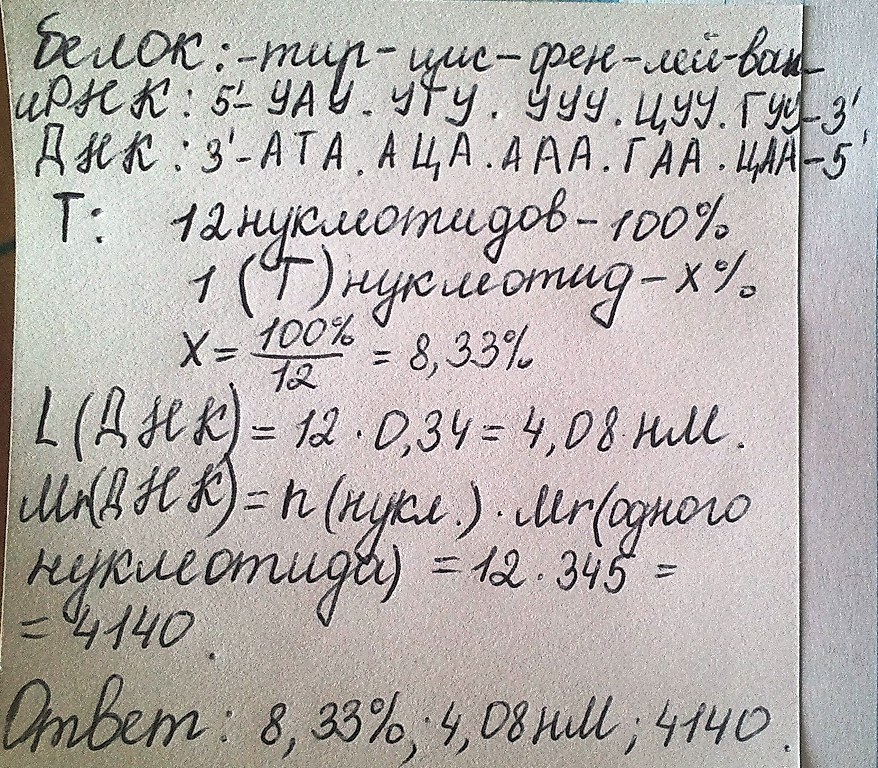 Белок: -тир-цис-фен-лей-вал-
иРНК: 5'- УАУ. УГУ. УУУ. ЦУУ. ГУУ-3'
ДНК: 3'-АТА. АЦА. ААА. ГАА. ЦАА-5'
Т: 12 нуклеотидов - 100%
1 (Т) нуклеотид - х%
Х = 100%/12 = 8,33%
L (ДНК) = 12 · 0,34 = 4,08 нм.
Mr(ДНК) = n (нукл.) · Mr(одного
нуклеотида) = 12 · 345 =
= 4140.
Ответ: 8,33%; 4,08 нм; 4140.